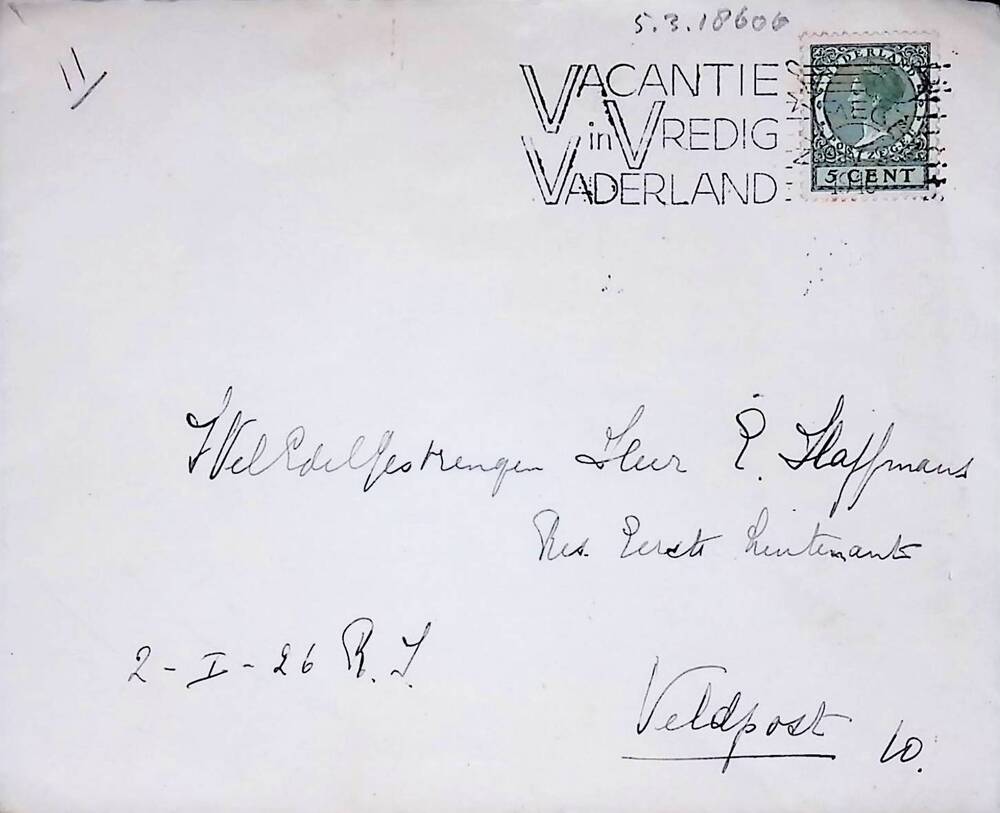 5.3.18606
11
VACANTIE
in VREDIG
VADERLAND
NEDERLAND
POSTZEGEL
5 CENT
WelEdelGestrengen Heer E. Haffmans
Res. Eerste Luitenant
2-I-26 R.I.
Veldpost 10.